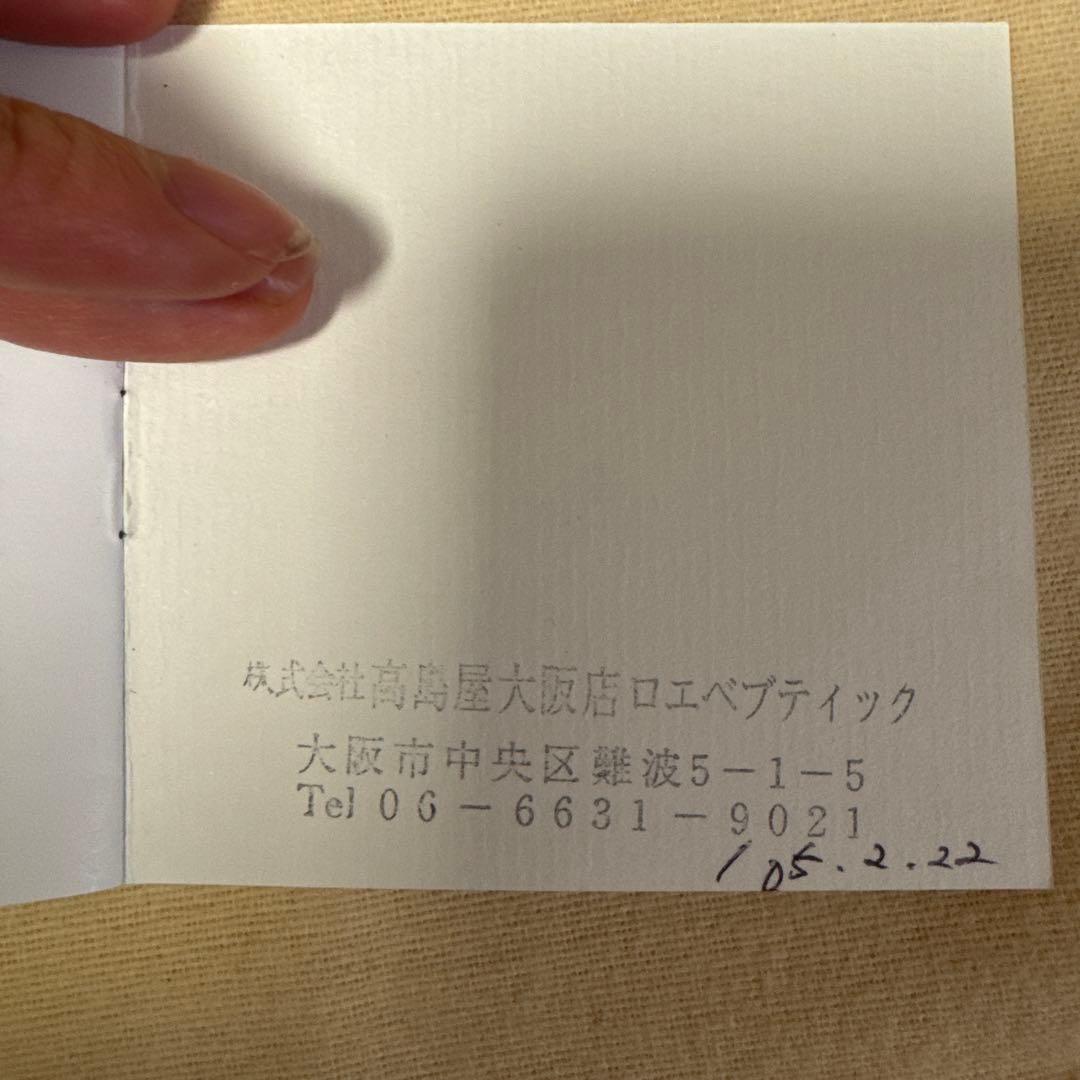 株式会社高島屋大阪店ロエベブティック
大阪市中央区難波5-1-5
Tel 06-6631-9021
'05.2.22